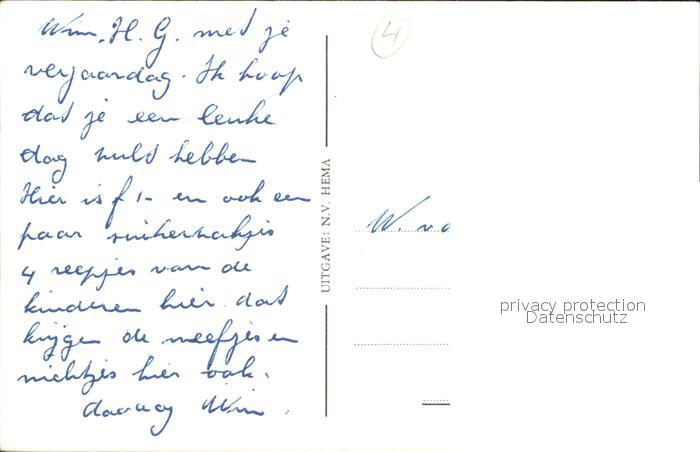 Wim, H. G. med je
verjaardag. Ik hoop
dat je een leuke
dag zult hebben
Hier is f 1- en ook een
paar suikerzakjes
4 reepjes van de
kinderen hier dat
krijgen de neefjes en
nichtjes hier ook.
daaag Wim.
4
UITGAVE: N.V. HEMA
W. va
privacy protection
Datenschutz